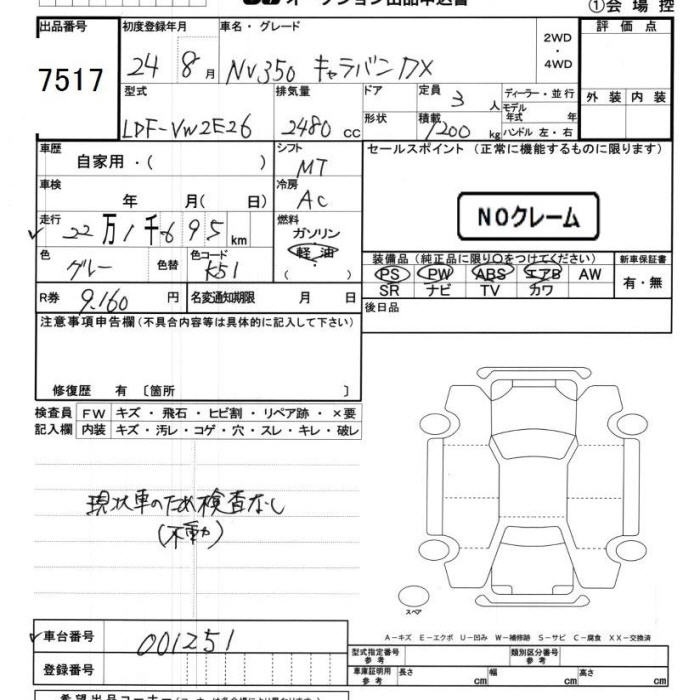 オークション出品申込書
①会場控
出品番号 初度登録年月 車名・グレード 2WD ・ 4WD 評価点
7517 24 8月 NV350 キャラバンDX
型式 排気量 ドア 定員 3人 ディーラー・並行 外装 内装
LDF-VW2E26 2480cc 形状 積載 1200kg モデル年式 年
ハンドル 左・右
車歴 自家用・( ) シフト MT セールスポイント (正常に機能するものに限ります)
車検 年 月( 日) 冷房 AC
NOクレーム
走行 22万1千695km 燃料 ガソリン
軽油
( )
色 グレー 色替 色コード K51
装備品 (純正品に限り○をつけてください) 新車保証書
PS PW ABS エアB AW 有・無
SR ナビ TV カワ
R券 9.160円 名変通知期限 月 日 後日品
注意事項申告欄 (不具合内容等は具体的に記入して下さい)
修復歴 有 〔箇所 〕
検査員 FW キズ・飛石・ヒビ割・リペア跡・×要
記入欄 内装 キズ・汚レ・コゲ・穴・スレ・キレ・破レ
現状車のため検査なし
(不動)
スペア
A-キズ E-エクボ U-凹み W-補修跡 S-サビ C-腐食 XX-交換済
車台番号 001251
型式指定番号 参考 類別区分番号 参考
登録番号
車庫証明用 参考 長さ cm 幅 cm 高さ cm
希望出品コーナー